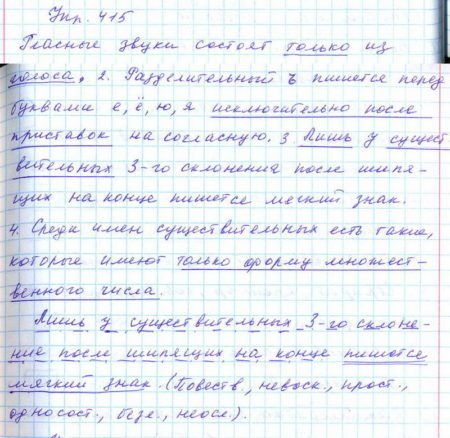 Упр. 415
Гласные звуки состоят только из
голоса. 2. Разделительный ъ пишется перед
буквами е, ё, ю, я исключительно после
приставок на согласную. 3. Лишь у сущест
вительных 3-го склонения после шипя-
щих на конце пишется мягкий знак.
4. Среди имен существительных есть такие,
которые имеют только форму множест-
венного числа.
Лишь у существительных 3-го склоне-
ние после шипящих на конце пишотсе
мягкий знак. (Повеств., невоск., прост.,
односост., безл., неосл.).